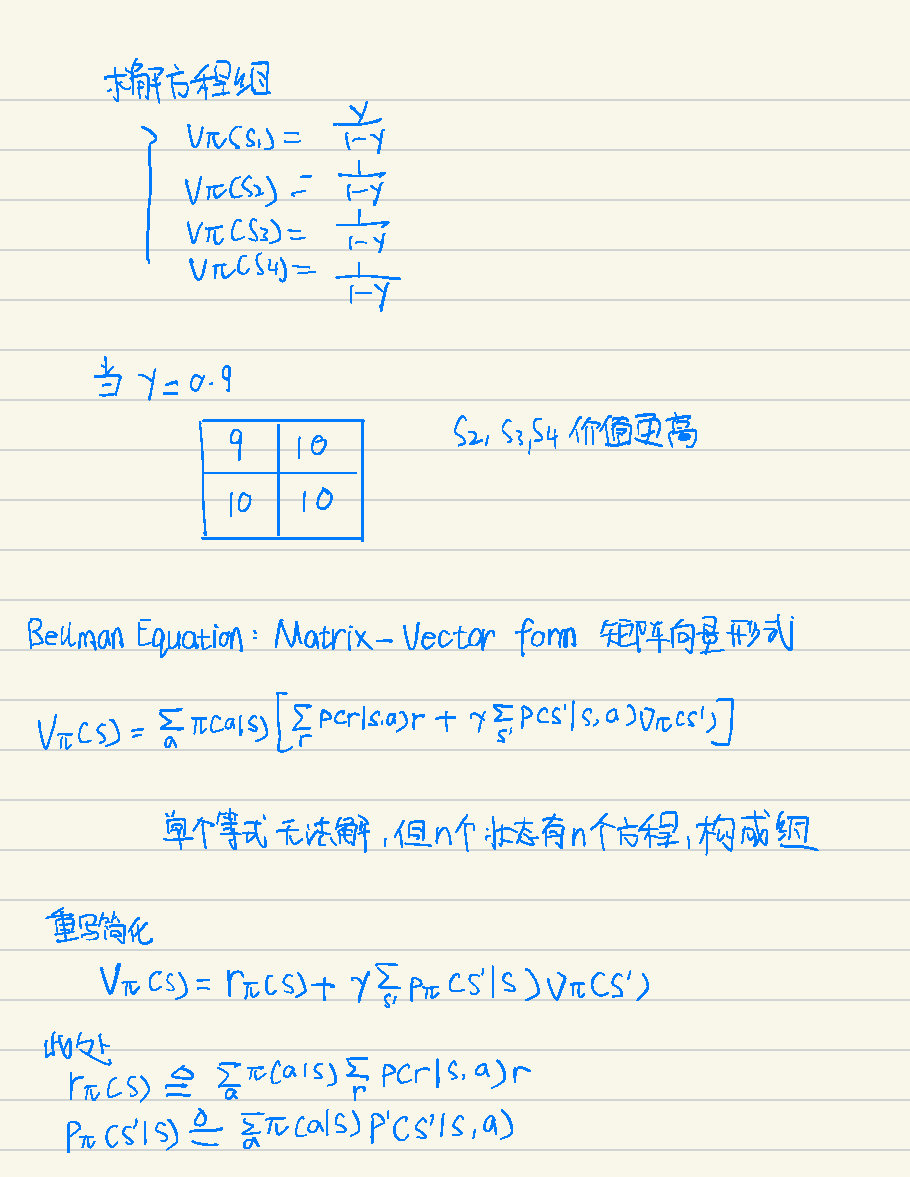 求解方程组
Vπ(S1) = γ/(1-γ)
Vπ(S2) = 1/(1-γ)
Vπ(S3) = 1/(1-γ)
Vπ(S4) = 1/(1-γ)
当 γ = 0.9
9 10
S2, S3, S4 价值更高
10 10
Bellman Equation: Matrix-Vector form 矩阵向量形式
Vπ(s) = ∑a π(a|s) [∑r p(r|s,a)r + γ∑s' p(s'|s,a)vπ(s')]
单个等式无法解,但n个状态有n个方程,构成组
重写简化
Vπ(s) = rπ(s) + γ∑s' pπ(s'|s)vπ(s')
此处
rπ(s) ≜ ∑a π(a|s) ∑r p(r|s,a)r
pπ(s'|s) ≜ ∑a π(a|s) p'(s'|s,a)